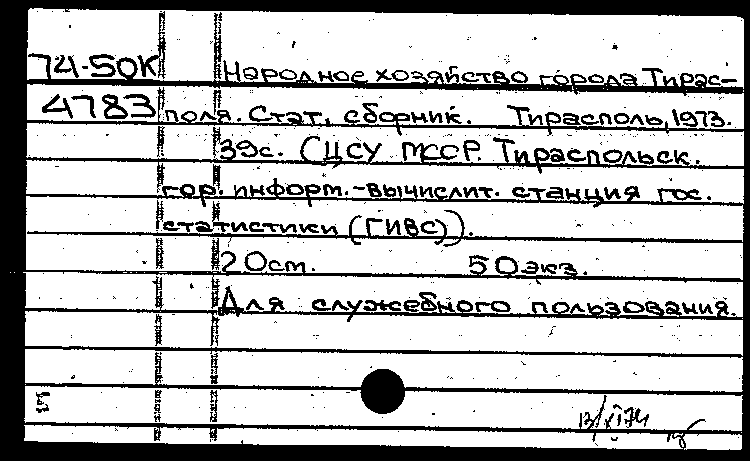 74-50К Народное хозяйство города Тирас-
4783 поля. Стат. сборник. Тирасполь, 1973.
39с. (ЦСУ МССР. Тираспольск.
гор. информ.-вычислит. станция гос.
статистики (ГИВС)).
20см. 50экз.
Для служебного пользования.
13/XI74